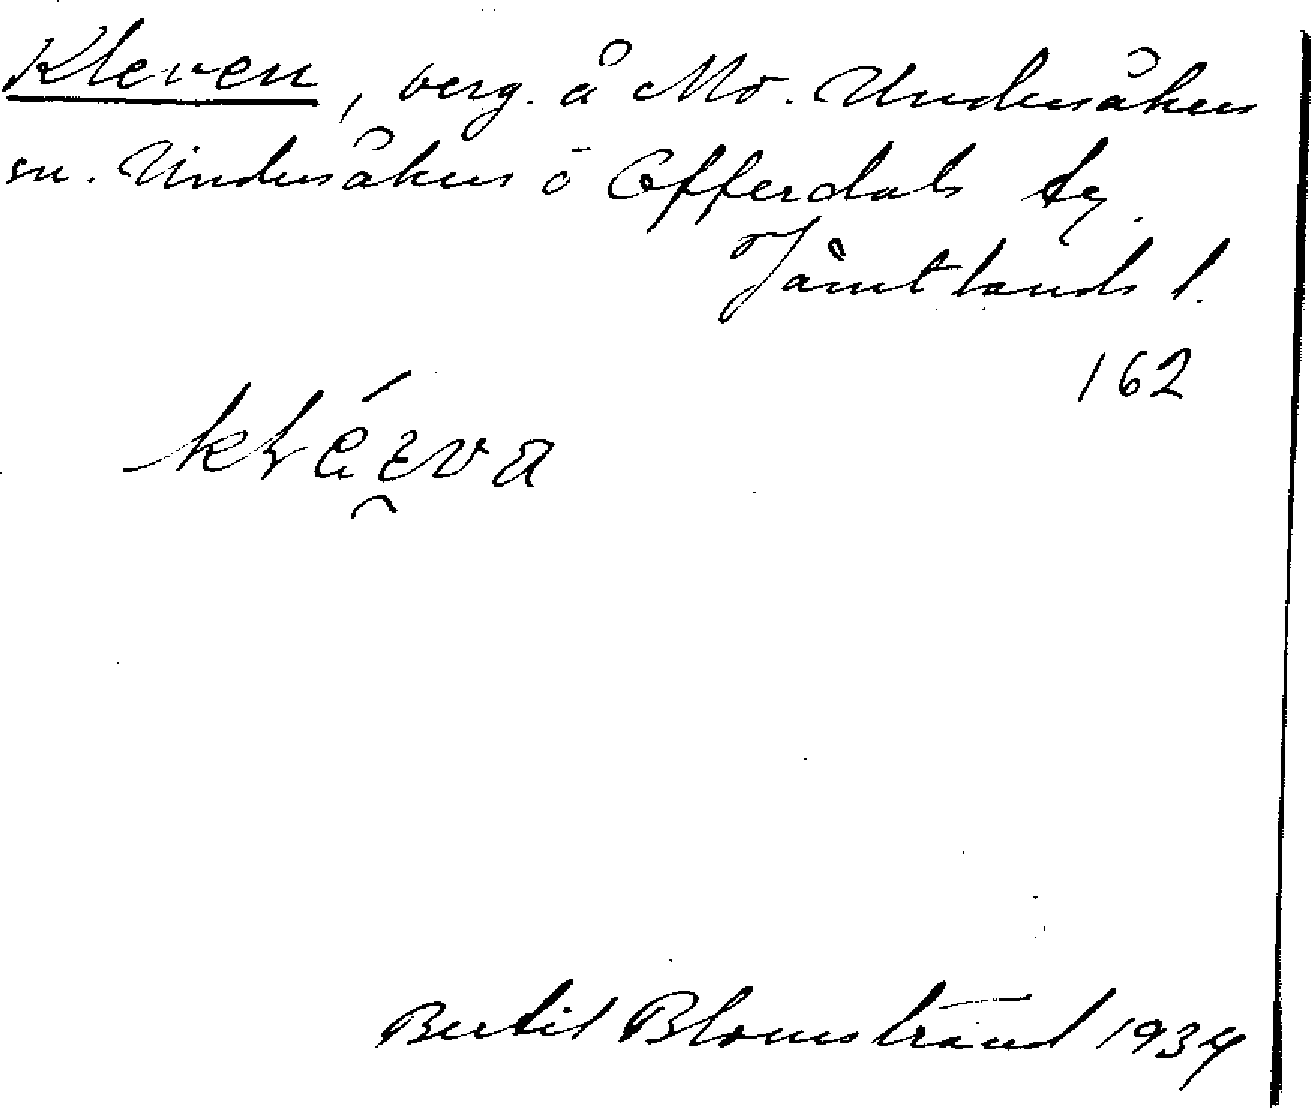 Kleven, berg. å Mo. Undersåkers
sn. Undersåkers o Offerdals tg.
Jämtlands l.
162
Bertil Blomstrand 1934